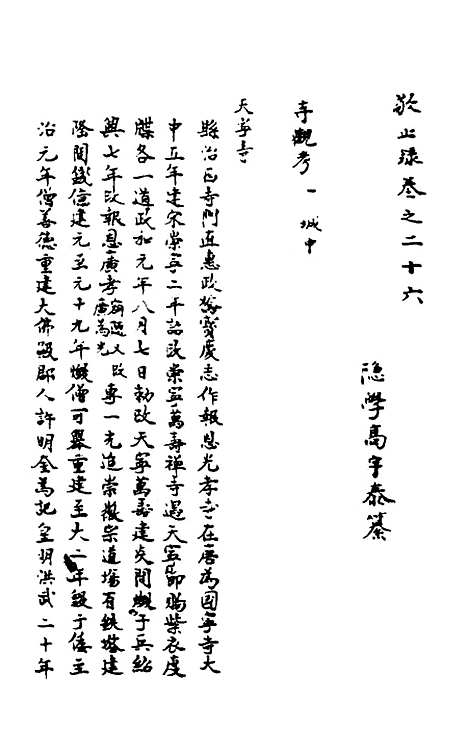 敬止录卷之二十六
隐學高宇泰纂
寺觀考一 城中
天寧寺
縣治西寺門直惠政橋寳慶志作報恩光孝寺在唐為國寧寺大
中五年建宋崇寧二年詔改崇寧萬壽禪寺遇天寧節賜紫衣度
牒各一道政和元年八月七日勅改天寧萬壽建炎間燬于兵紹
興七年改報恩廣孝嗣透又改廣為光專一充追崇徽宗道塲有鉄塔建
隆間錢億建元至元十九年燬僧可舉重建至大二年燬于倭至
治元年僧善德重建大佛殿郡人許明奎為記皇明洪武二十年